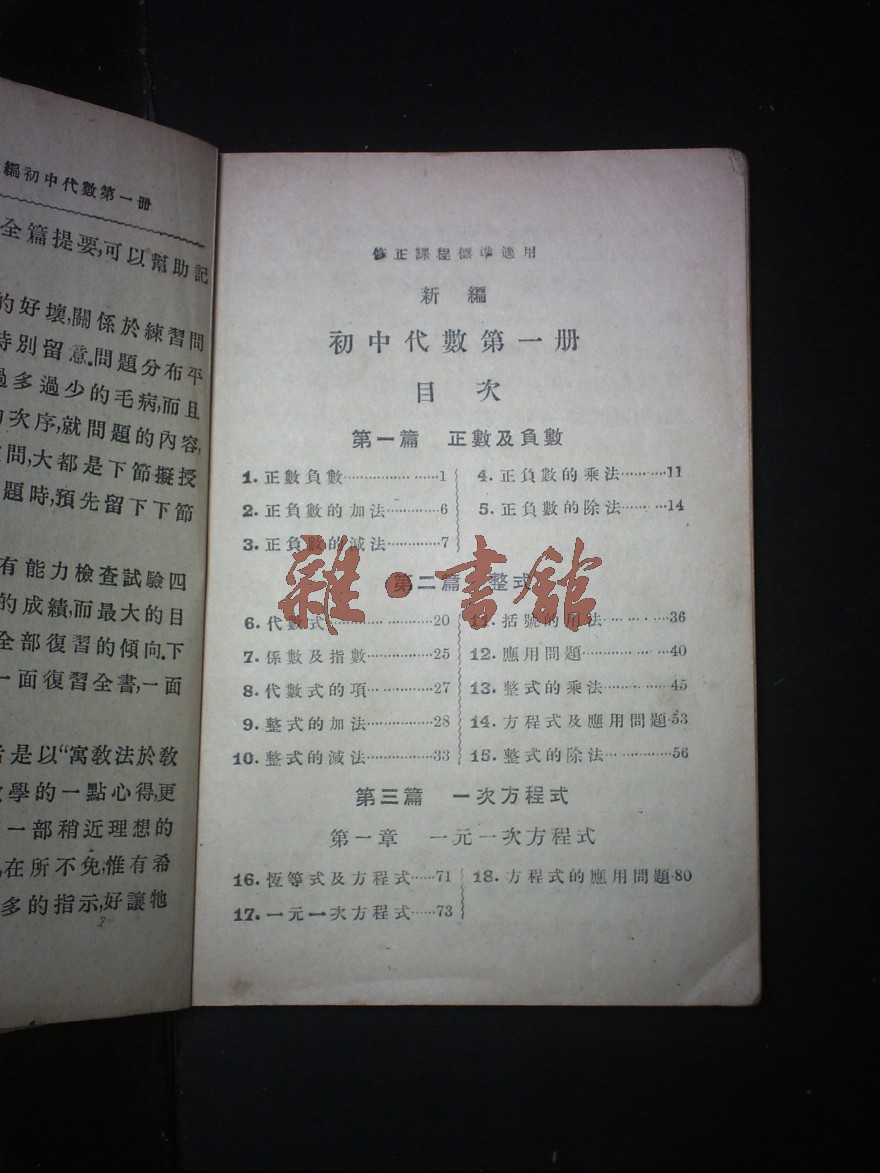 編初中代數第一册
全篇提要,可以幫助記
的好壞,關係於練習問
特別留意.問題分布平
過多過少的毛病,而且
次序,就問題的內容,
問,大都是下節擬授
題時,預先留下下節
有能力檢查試驗四
的成績,而最大的目
全部復習的傾向.下
一面復習全書,一面
是以“寓敎法於敎
學的一點心得,更
一部稍近理想的
在所不免,惟有希
多的指示,好讓牠
修正課程標準適用
新編
初中代數第一册
目次
第一篇 正數及負數
1.正數負數………………1
2.正負數的加法…………6
3.正負數的減法…………7
4.正負數的乘法………11
5.正負數的除法………14
第二篇 整式
6.代數式………………20
7.係數及指數…………25
8.代數式的項…………27
9.整式的加法…………28
10.整式的減法…………33
11.括號的用法…………36
12.應用問題……………40
13.整式的乘法…………45
14.方程式及應用問題.53
15.整式的除法…………56
雜·書館
第三篇 一次方程式
第一章 一元一次方程式
16.恆等式及方程式……71
17.一元一次方程式……73
18.方程式的應用問題.80